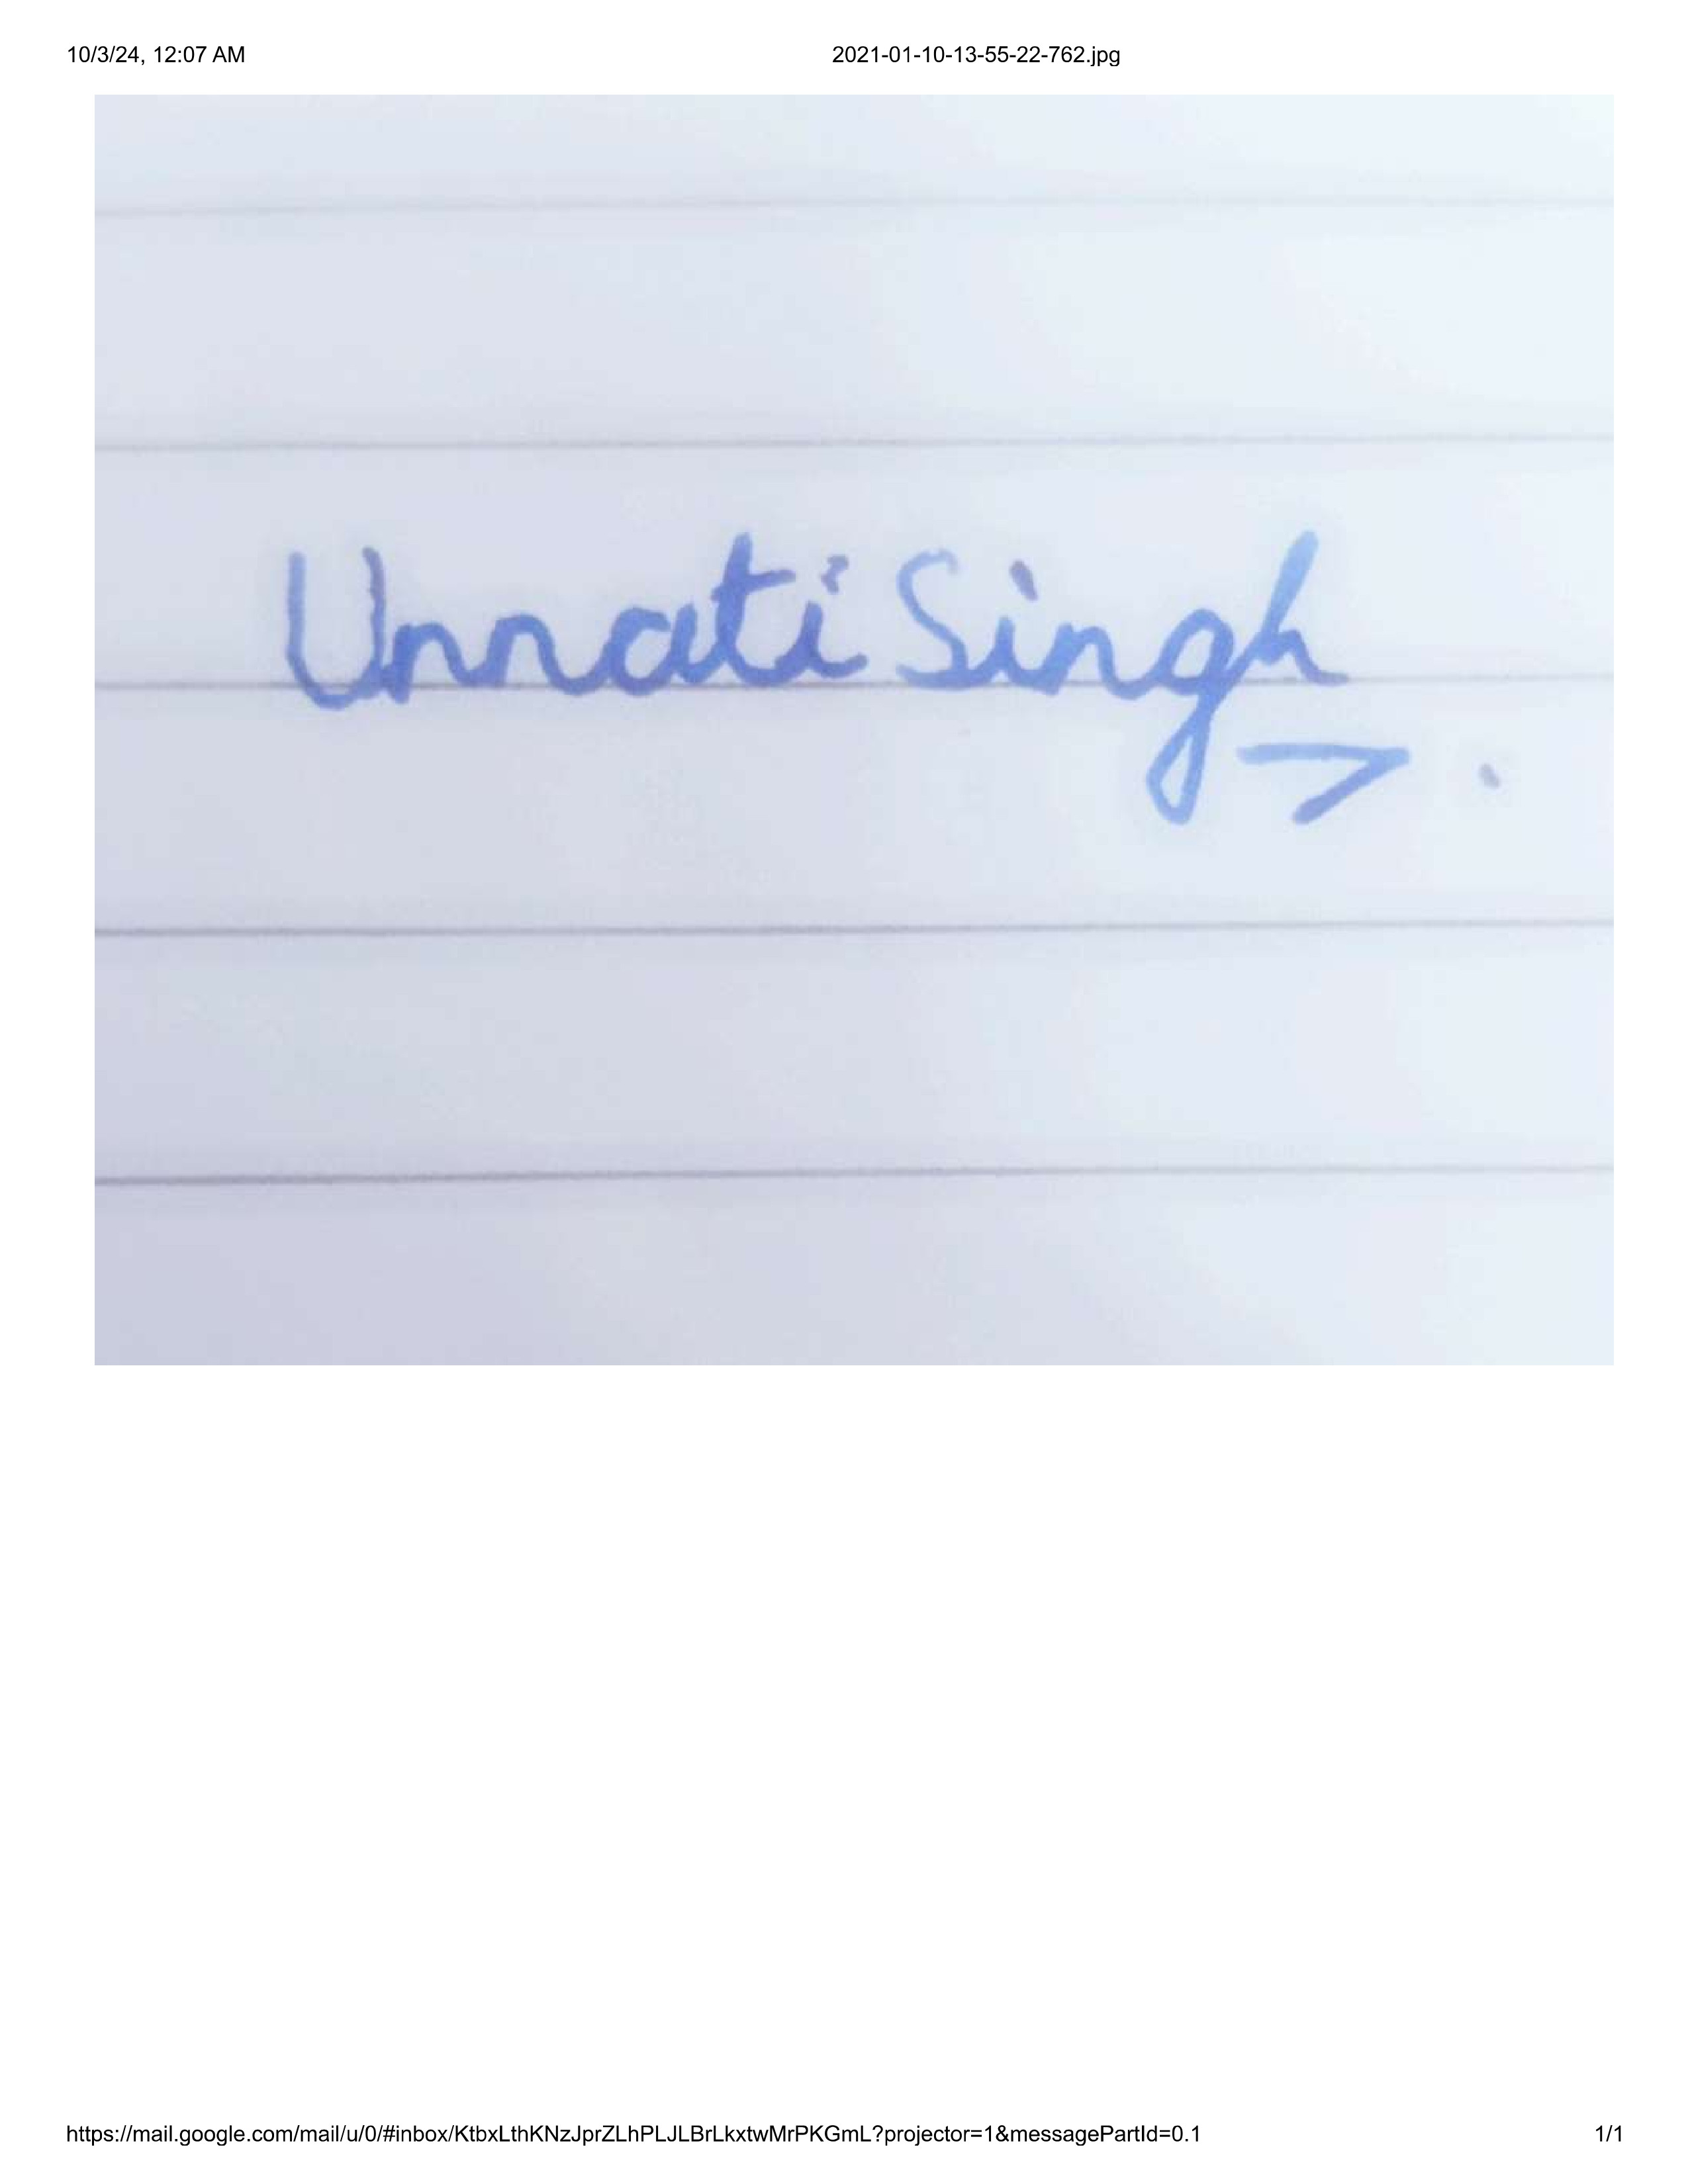 10/3/24, 12:07 AM 2021-01-10-13-55-22-762.jpg
Unnati Singh
https://mail.google.com/mail/u/0/#inbox/KtbxLthKNzJprZLhPLJLBrLkxtwMrPKGmL?projector=1&messagePartId=0.1 1/1